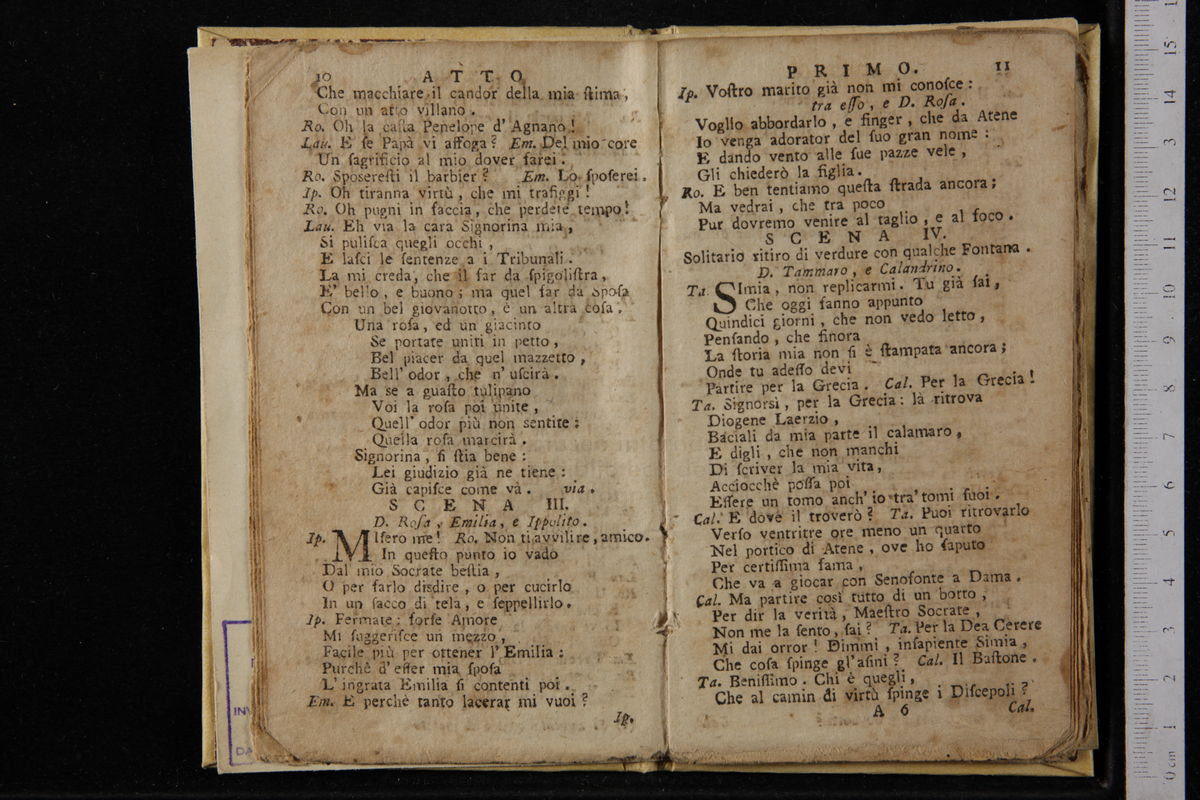 10 ATTO
Che macchiare il candor della mia ſtima,
Con un atto villano.
Ro. Oh la caſta Penelope d' Agnano!
Lau. E ſe Papà vi affoga? Em. Del mio core
Un ſagrificio al mio dover farei.
Ro. Spoſereſti il barbier? Em. Lo ſpoſerei.
Ip. Oh tiranna virtù, che mi trafiggi!
Ro. Oh pugni in faccia, che perdete tempo!
Lau. Eh via la cara Signorina mia,
Si puliſca quegli occhi,
E laſci le ſentenze a i Tribunali.
La mi creda, che il far da ſpigoliſtra,
E' bello, e buono; ma quel far da Spoſa
Con un bel giovanotto, è un altra coſa.
Una roſa, ed un giacinto
Se portate uniti in petto,
Bel piacer da quel mazzetto,
Bell' odor, che n' uſcirà.
Ma se a guaſto tulipano
Voi la roſa poi unite,
Quell' odor più non sentite:
Quella roſa marcirà.
Signorina, ſi ſtia bene:
Lei giudizio già ne tiene:
Già capiſce come va. via.
SCENA III.
D. Roſa, Emilia, e Ippolito.
Ip. MIſero me! Ro. Non ti avvilire, amico.
In queſto punto io vado
Dal mio Socrate beſtia,
O per farlo disdire, o per cucirlo
In un ſacco di tela, e ſeppellirlo.
Ip. Fermate: forſe Amore
Mi ſuggeriſce un mezzo,
Facile più per ottener l' Emilia:
Purchè d' eſſer mia ſpoſa
L' ingrata Emilia ſi contenti poi.
Em. E perchè tanto lacerar mi vuoi?
Ip.
PRIMO. 11
Ip. Voſtro marito già non mi conoſce:
tra eſſo, e D. Roſa.
Voglio abbordarlo, e finger, che da Atene
Io venga adorator del ſuo gran nome:
E dando vento alle ſue pazze vele,
Gli chiederò la figlia.
Ro. E ben tentiamo queſta ſtrada ancora;
Ma vedrai, che tra poco
Pur dovremo venire al taglio, e al foco.
SCENA IV.
Solitario ritiro di verdure con qualche Fontana.
D. Tammaro, e Calandrino.
Ta. SImia, non replicarmi. Tu già ſai,
Che oggi fanno appunto
Quindici giorni, che non vedo letto,
Penſando, che finora
La ſtoria mia non ſi è ſtampata ancora;
Onde tu adeſſo devi
Partire per la Grecia. Cal. Per la Grecia!
Ta. Signorsì, per la Grecia: là ritrova
Diogene Laerzio,
Baciali da mia parte il calamaro,
E digli, che non manchi
Di ſcriver la mia vita,
Acciocchè poſſa poi
Eſſere un tomo anch' io tra' tomi ſuoi.
Cal. E dove il troverò? Ta. Puoi ritrovarlo
Verſo ventritre ore meno un quarto
Nel portico di Atene, ove ho ſaputo
Per certiſſima fama,
Che va a giocar con Senofonte a Dama.
Cal. Ma partire così tutto di un botto,
Per dir la verità, Maeſtro Socrate,
Non me la ſento, ſai? Ta. Per la Dea Cerere
Mi dai orror! Dimmi, inſapiente Simia,
Che coſa ſpinge gl' aſini? Cal. Il Baſtone.
Ta. Beniſſimo. Chi è quegli,
Che al camin di virtù ſpinge i Diſcepoli?
A 6 Cal.